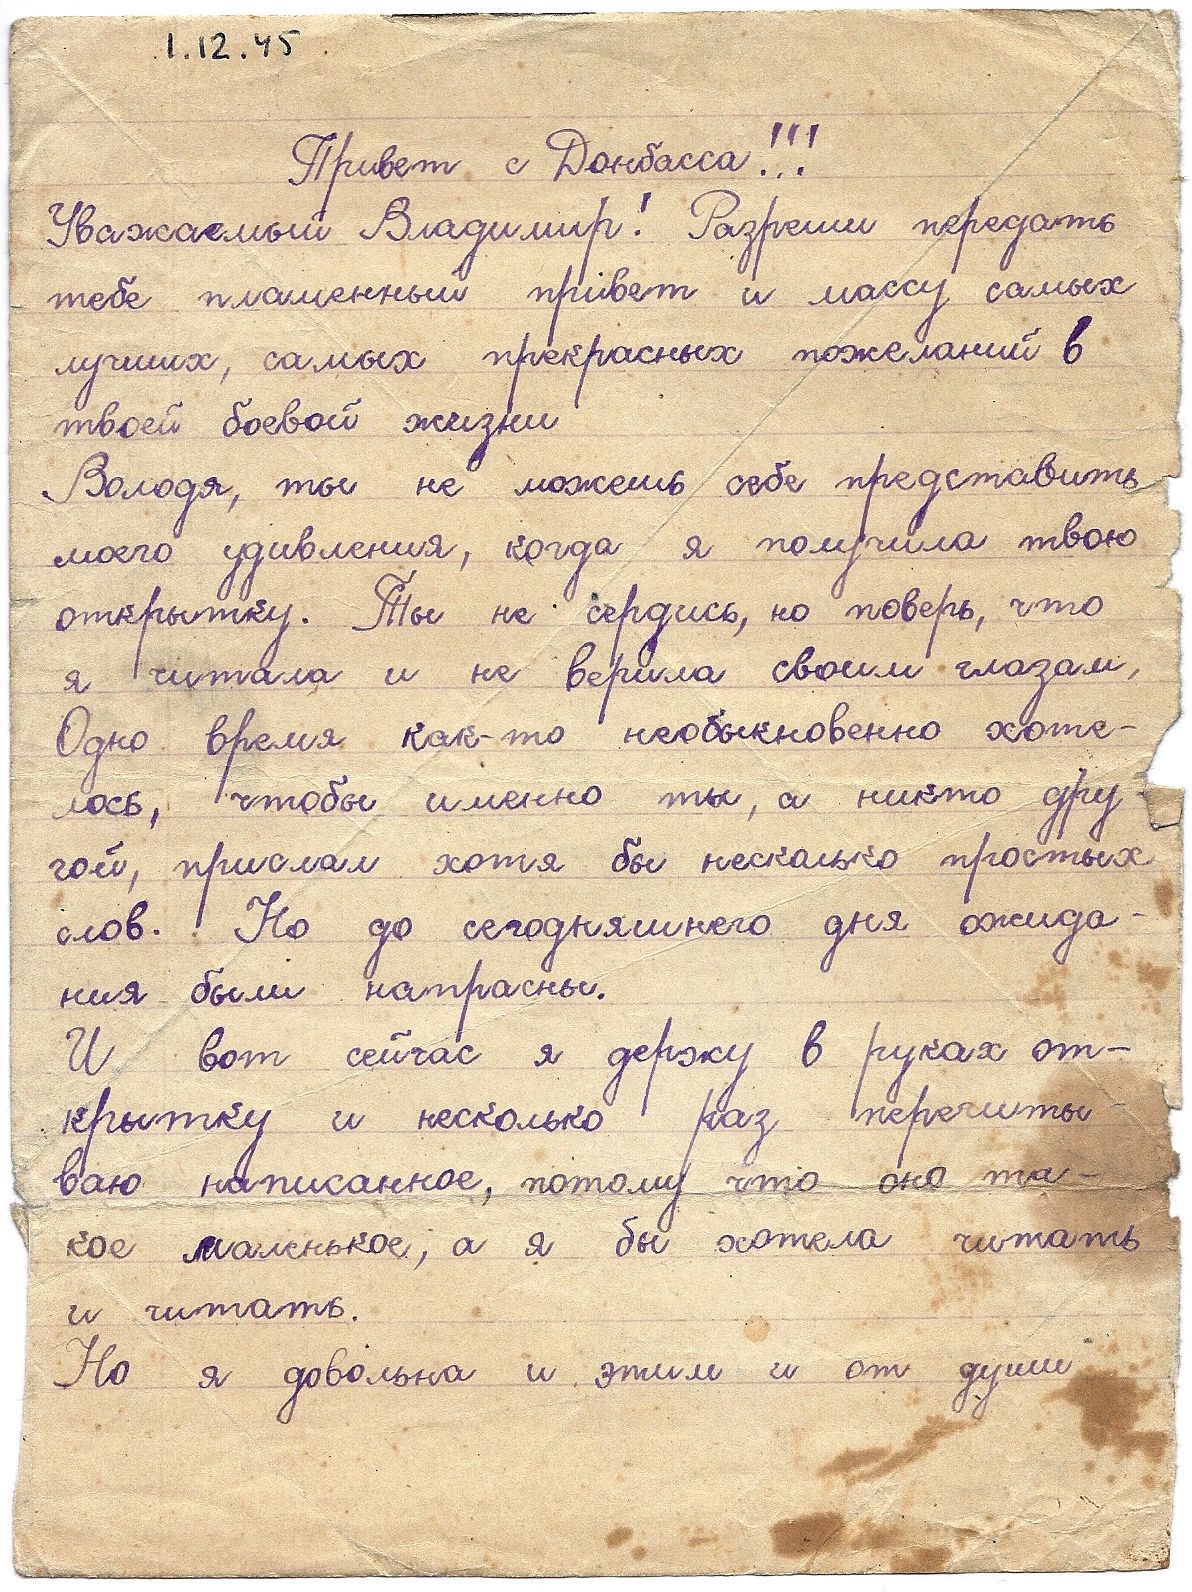 1.12.45
Привет с Донбасса!!!
Уважаемый Владимир! Разреши передать
тебе пламенный прівет и массу самых
лучших, самых прекрасных пожеланий в
твоей боевой жизни
Володя, ты не можешь себе представить
моего удивления, когда я получила твою
открытку. Ты не сердись, но поверь, что
я читала и не верила своим глазам,
Одно время как-то необыкновенно хоте-
лось, чтобы именно ты, а никто дру-
гой, прислал хотя бы несколько простых
слов. Но до сегодняшнего дня ожида-
ния были натрасны.
И вот сейчас я держу в руках от-
крытку и несколько раз перечиты-
ваю написанное, потому что оно та-
кое маленькое, а я бы хотела читать
и читать.
Но я довольна и этим и от души